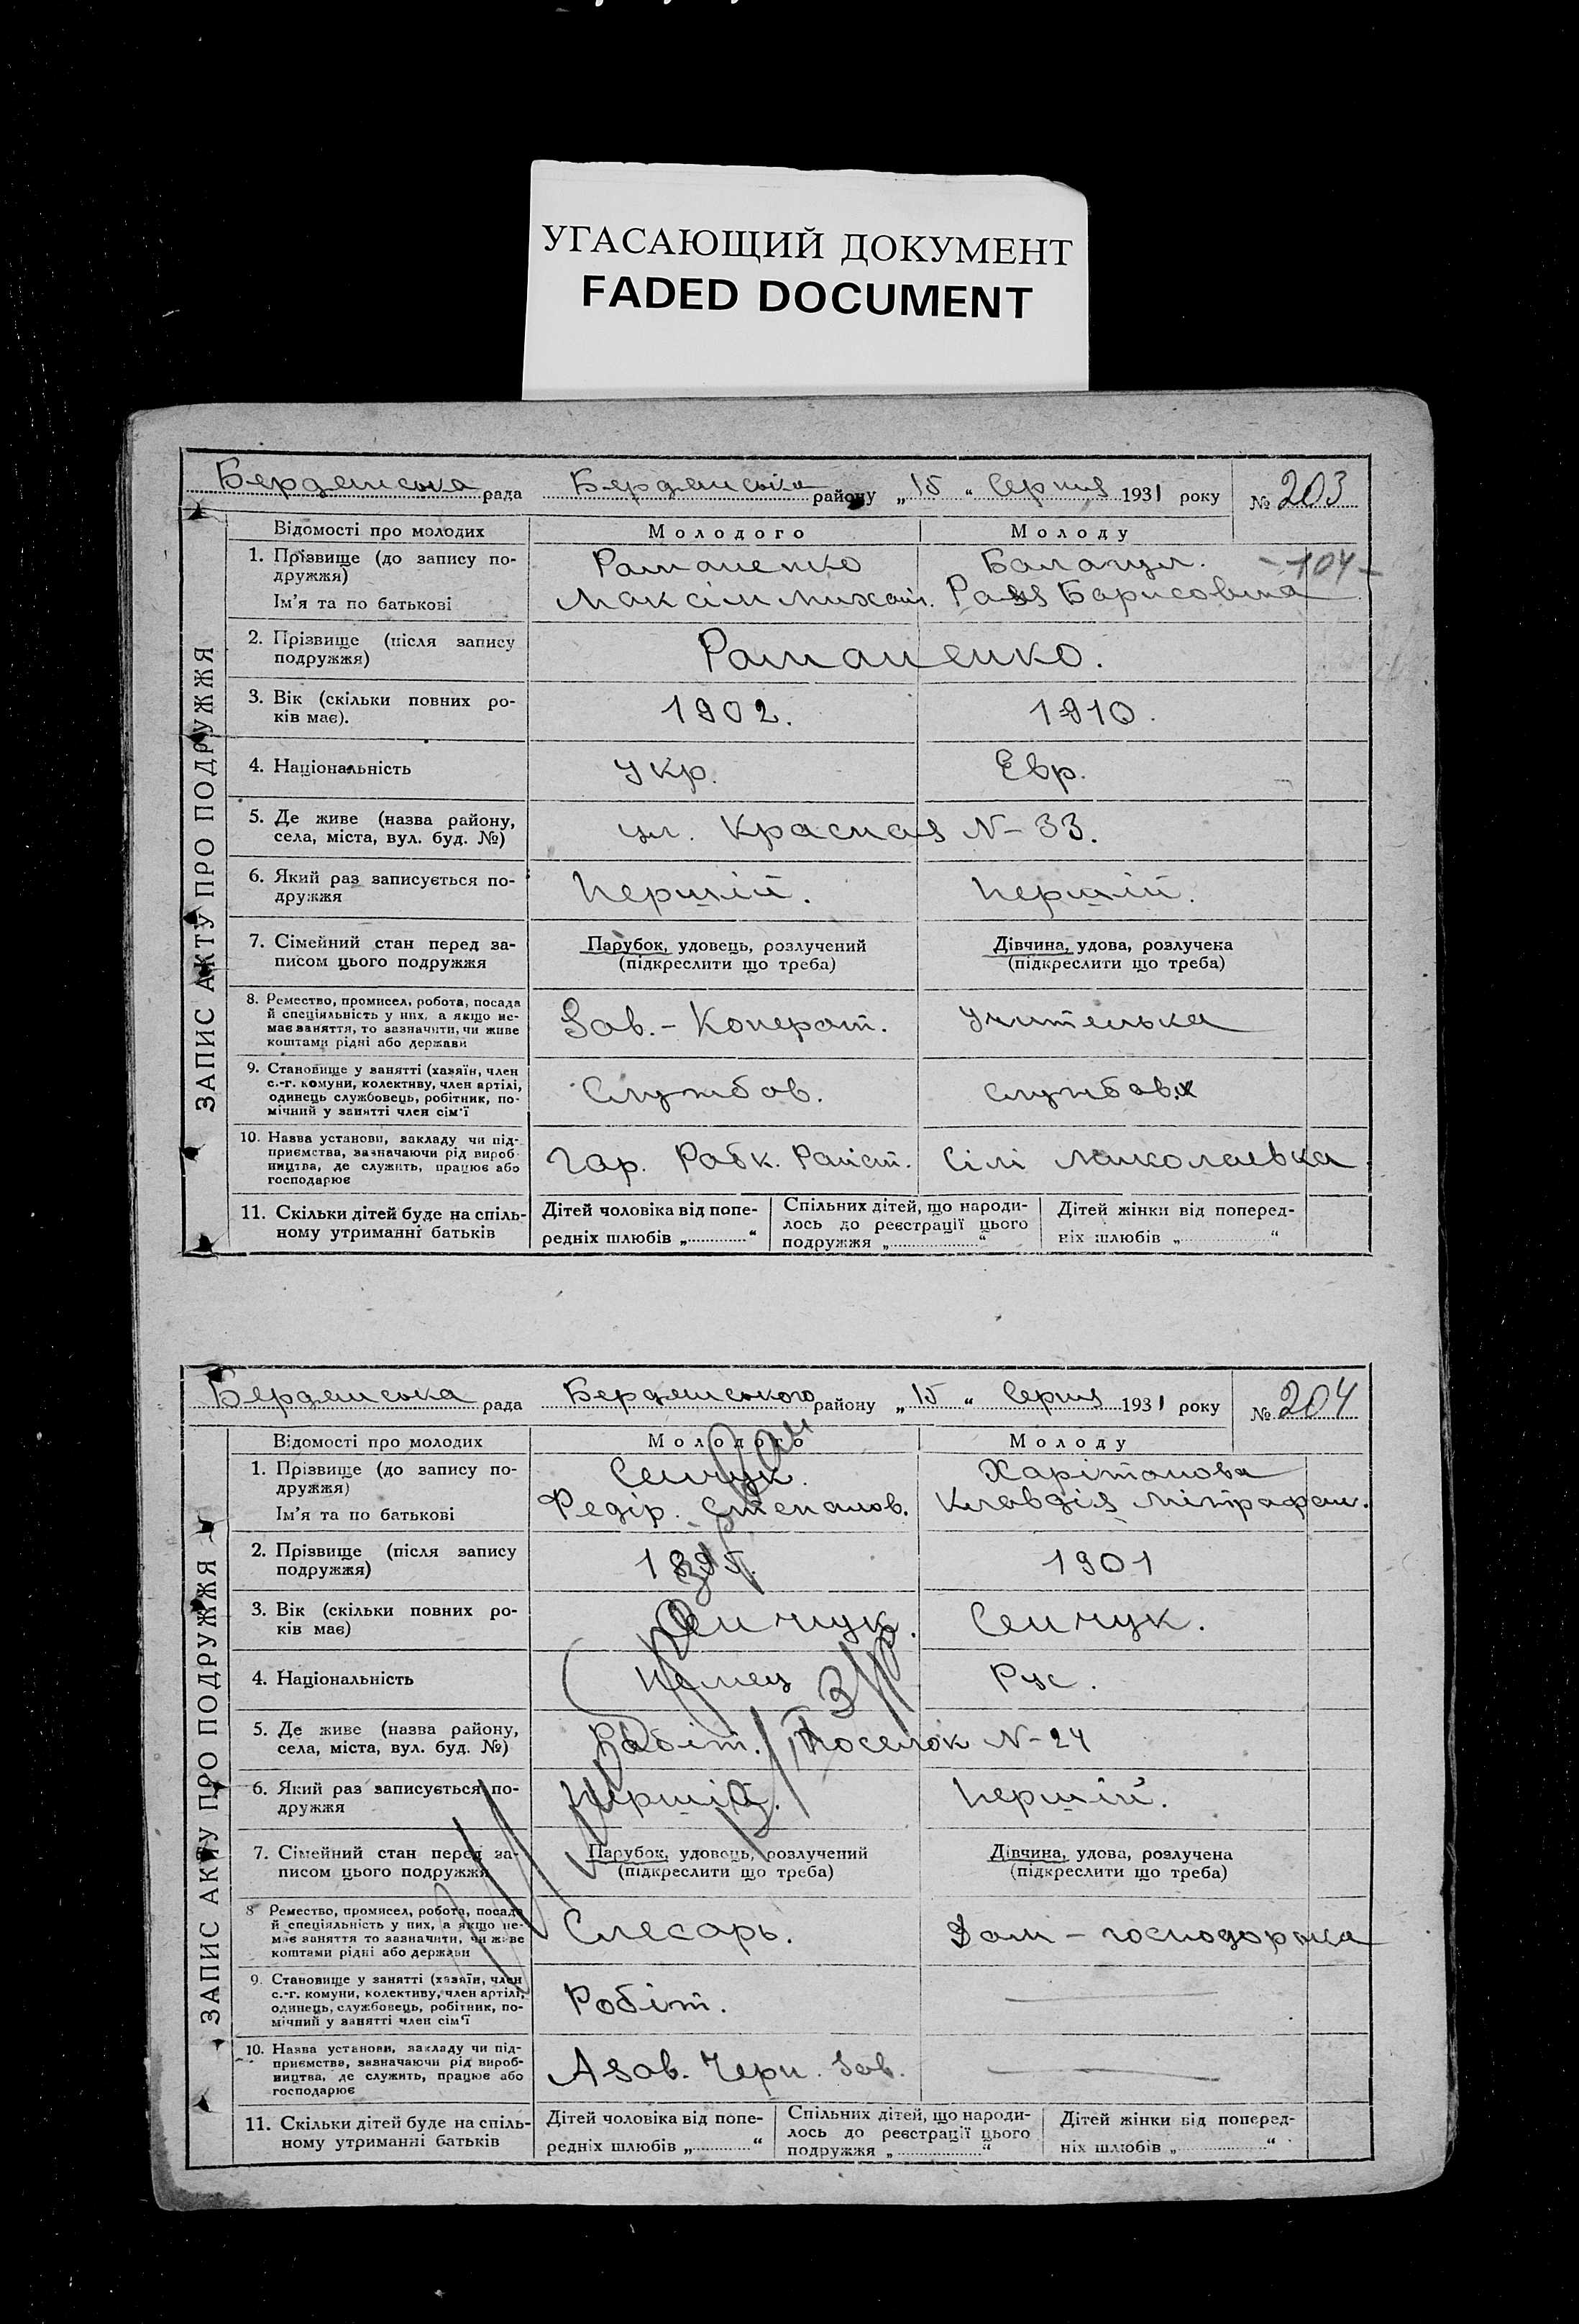 УГАСАЮЩИЙ ДОКУМЕНТ
FADED DOCUMENT
ЗАПИС АКТУ ПРО ПОДРУЖЖЯ
Бердянська рада Бердянська району „15“ Серпня 1931 року № 203
Відомості про молодих Молодого Молоду
1. Прізвище (до запису по-
дружжя) Раманенко Балагул. -104-
Ім'я та по батькові Максім Михайл. Рая Барисовна
2. Прізвище (після запису
подружжя) Раманенко.
3. Вік (скільки повних ро-
ків має). 1902. 1910.
4. Національність Укр. Евр.
5. Де живе (назва району,
села, міста, вул. буд. №) ул. Красная N-33.
6. Який раз записується по-
дружжя Першій. Першій.
7. Сімейний стан перед за-
писом цього подружжя
Парубок, удовець, розлучений
(підкреслити що треба)
Дівчина, удова, розлучена
(підкреслити що треба)
8. Ремество, промисел, робота, посада
й спеціяльність у них, а якщо не-
має заняття, то зазначити, чи живе
коштами рідні або держави
Зав.-Коперат. Учителька
9. Становище у занятті (хазяїн, член
с.-г. комуни, колективу, член артілі,
одинець службовець, робітник, по-
мічний у занятті член сім'ї
Службов. Службов.
10. Назва установи, закладу чи під-
приємства, зазначаючи рід вироб-
ництва, де служить, працює або
господарює
Гар. Рабк. Сілі Миколаевка
11. Скільки дітей буде на спіль-
ному утриманні батьків
Дітей чоловіка від попе-
редніх шлюбів „ “
Спільних дітей, що народи-
лось до реєстрації цього
подружжя „ “
Дітей жінки від поперед-
ніх шлюбів „ “
ЗАПИС АКТУ ПРО ПОДРУЖЖЯ
Бердянська рада Бердянського району „15“ Серпня 1931 року № 204
Відомості про молодих Молодого Молоду
1. Прізвище (до запису по-
дружжя) Сенчук. Харітанова
Ім'я та по батькові Федір. Степанов. Клавдія Мітрафан.
2. Прізвище (після запису
подружжя) 1895. 1901
3. Вік (скільки повних ро-
ків має) Сенчук. Сенчук.
4. Національність Немец Рус.
5. Де живе (назва району,
села, міста, вул. буд. №) Рабіт. Поселок N-24
6. Який раз записується по-
дружжя Першій. Першій.
7. Сімейний стан перед за-
писом цього подружжя
Парубок, удовець, розлучений
(підкреслити що треба)
Дівчина, удова, розлучена
(підкреслити що треба)
8 Ремество, промисел, робота, посада
й спеціяльність у них, а якщо не-
має заняття то зазначити, чи живе
коштами рідні або держави
Слесарь. Дом-господорка
9. Становище у занятті (хазяїн, член
с.-г. комуни, колективу, член артілі,
одинець, службовець, робітник, по-
мічний у занятті член сім'ї
Робіт.
10. Назва установи, закладу чи під-
приємства, зазначаючи рід вироб-
ництва, де служить, працює або
господарює
Азов. Черн. Зав.
11. Скільки дітей буде на спіль-
ному утриманні батьків
Дітей чоловіка від попе-
редніх шлюбів „ “
Спільних дітей, що народи-
лось до реєстрації цього
подружжя „ “
Дітей жінки від поперед-
ніх шлюбів „ “